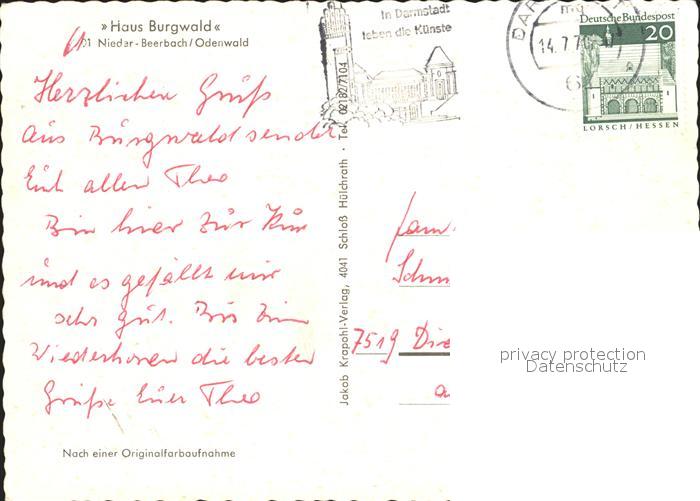 » Haus Burgwald «
61 Nieder-Beerbach/Odenwald
Herzlichen Gruß
aus Burgwald sendet
Euch allen Theo
Bin hier zur Kur
und es gefällt mir
sehr gut. Bis zum
Wiederhören die besten
Grüße Euer Theo
Nach einer Originalfarbaufnahme
Jakob Krapohl-Verlag, 4041 Schloß Hülchrath · Tel. 02182/7104
In Darmstadt
leben die Künste
DAR
14.7.70
6
Deutsche Bundespost
20
LORSCH/HESSEN
Fam.
Schm
7519
privacy protection
Datenschutz